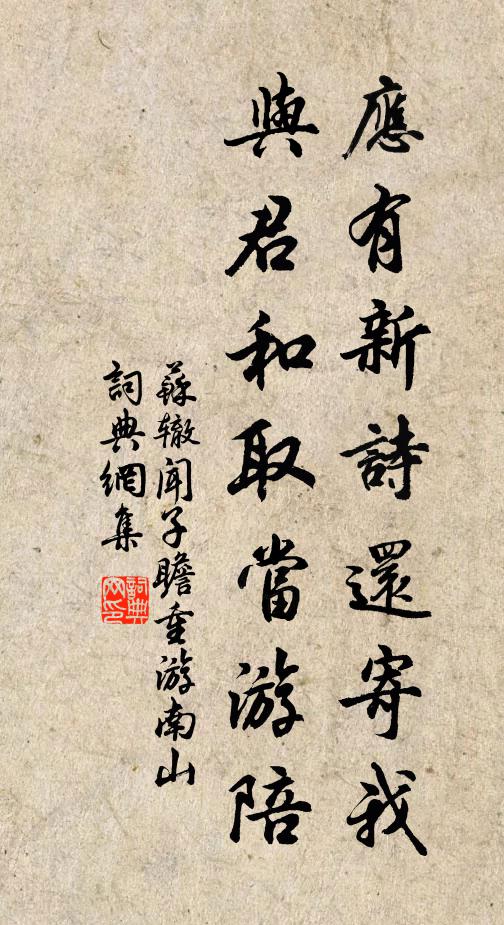 應有新詩還寄我
與君和取當游陪
蘇辙闻子瞻重游南山
詞典網集
詞典网印